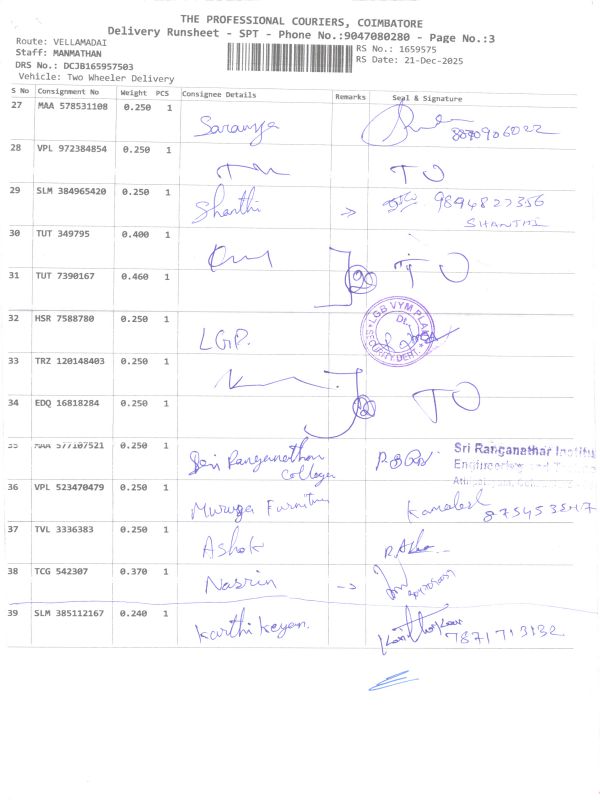 THE PROFESSIONAL COURIERS, COIMBATORE
Delivery Runsheet - SPT - Phone No.:9047080280 - Page No.:3
Route: VELLAMADAI
Staff: MANMATHAN
DRS No.: DCJB165957503
Vehicle: Two Wheeler Delivery
RS No.: 1659575
RS Date: 21-Dec-2025
S No Consignment No Weight PCS Consignee Details Remarks Seal & Signature
27 MAA 578531108 0.250 1 Saranya
28 VPL 972384854 0.250 1 TO
29 SLM 384965420 0.250 1 Shanthi 9894827356
SHANTHI
30 TUT 349795 0.400 1 TO
31 TUT 7390167 0.460 1
32 HSR 7588780 0.250 1 LGP. LGB VYM PLA SECURITY DEPT.
33 TRZ 120148403 0.250 1 TO
34 EDQ 16818284 0.250 1
35 MAA 577107521 0.250 1 Sri Ranganathan Sri Ranganathar Institu
College Engineering and
36 VPL 523470479 0.250 1 Muruga Furniture Kamalesh
37 TVL 3336383 0.250 1 Ashok
38 TCG 542307 0.370 1 Nasrin
39 SLM 385112167 0.240 1 Karthikeyan. 7871713132